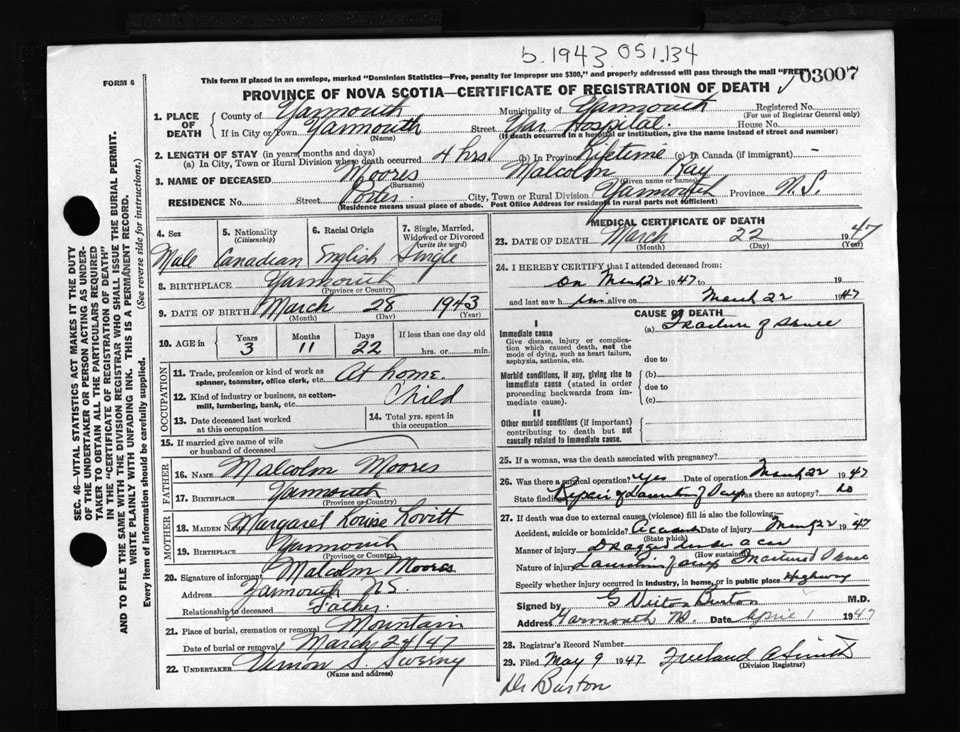 b.1943.051.134
FORM 6
This form if placed in an envelope, marked "Dominion Statistics—Free, penalty for improper use $300," and properly addressed will pass through the mail "FREE"
03007
PROVINCE OF NOVA SCOTIA—CERTIFICATE OF REGISTRATION OF DEATH
1. PLACE OF DEATH County of Yarmouth Municipality of Yarmouth Registered No.
(For use of Registrar General only)
If in City or Town Yarmouth (Name) Street Yar Hospital. House No.
(If death occurred in a hospital or institution, give the name instead of street and number)
2. LENGTH OF STAY (in years, months and days)
(a) In City, Town or Rural Division where death occurred 4 hrs. (b) In Province Lifetime (c) In Canada (if immigrant) –
3. NAME OF DECEASED Moores Malcolm Ray
(Surname) (Given name or names)
RESIDENCE No. Street City, Town or Rural Division Yarmouth Province N.S.
(Residence means usual place of abode. Post Office Address for residents in rural parts not sufficient)
4. Sex 5. Nationality (Citizenship) 6. Racial Origin 7. Single, Married, Widowed or Divorced (write the word)
Male Canadian English Single
8. BIRTHPLACE Yarmouth
(Province or Country)
9. DATE OF BIRTH March 28 1943
(Month) (Day) (Year)
10. AGE in Years Months Days If less than one day old
3 11 22 hrs. or min.
OCCUPATION
11. Trade, profession or kind of work as spinner, teamster, office clerk, etc. At home.
12. Kind of industry or business, as cotton-mill, lumbering, bank, etc. Child
13. Date deceased last worked at this occupation
14. Total yrs. spent in this occupation
15. If married give name of wife or husband of deceased
FATHER
16. NAME Malcolm Moores
17. BIRTHPLACE Yarmouth
(Province or Country)
MOTHER
18. MAIDEN NAME Margaret Louise Lovitt
19. BIRTHPLACE Yarmouth
(Province or Country)
20. Signature of informant Malcolm Moores
Address Yarmouth N.S.
Relationship to deceased Father.
21. Place of burial, cremation or removal Mountain
Date of burial or removal March 24/47
22. UNDERTAKER Vernon S. Sweeny
(Name and address)
MEDICAL CERTIFICATE OF DEATH
23. DATE OF DEATH March 22 1947
(Month) (Day) (Year)
24. I HEREBY CERTIFY that I attended deceased from:
on March 22 1947 to 19
and last saw h im alive on March 22 1947
CAUSE OF DEATH
I
Immediate cause (a) Fracture of
Give disease, injury or complication which caused death, not the mode of dying, such as heart failure, asphyxia, asthenia, etc.
due to
Morbid conditions, if any, giving rise to immediate cause (stated in order proceeding backwards from immediate cause).
(b)
due to
(c)
II
Other morbid conditions (if important) contributing to death but not causally related to immediate cause.
25. If a woman, was the death associated with pregnancy?
26. Was there a surgical operation? Yes Date of operation March 22 1947
State findings Repair of was there an autopsy? no
27. If death was due to external causes (violence) fill in also the following:
Accident, suicide or homicide? Accident Date of injury March 22 1947
(State which)
Manner of injury Dragged under a car
(How sustained)
Nature of injury Fractured
Specify whether injury occurred in industry, in home, or in public place Highway
Signed by G Victor Burton M.D.
Address Yarmouth NS. Date April 1 1947
28. Registrar's Record Number
29. Filed May 9 1947 Freeland A Smith
(Division Registrar)
Dr Burton
SEC. 46—VITAL STATISTICS ACT MAKES IT THE DUTY
OF THE UNDERTAKER OR PERSON ACTING AS UNDER-
TAKER TO OBTAIN ALL THE PARTICULARS REQUIRED
IN THE "CERTIFICATE OF REGISTRATION OF DEATH"
AND TO FILE THE SAME WITH THE DIVISION REGISTRAR WHO SHALL ISSUE THE BURIAL PERMIT.
WRITE PLAINLY WITH UNFADING INK. THIS IS A PERMANENT RECORD.
Every item of information should be carefully supplied. (See reverse side for instructions.)